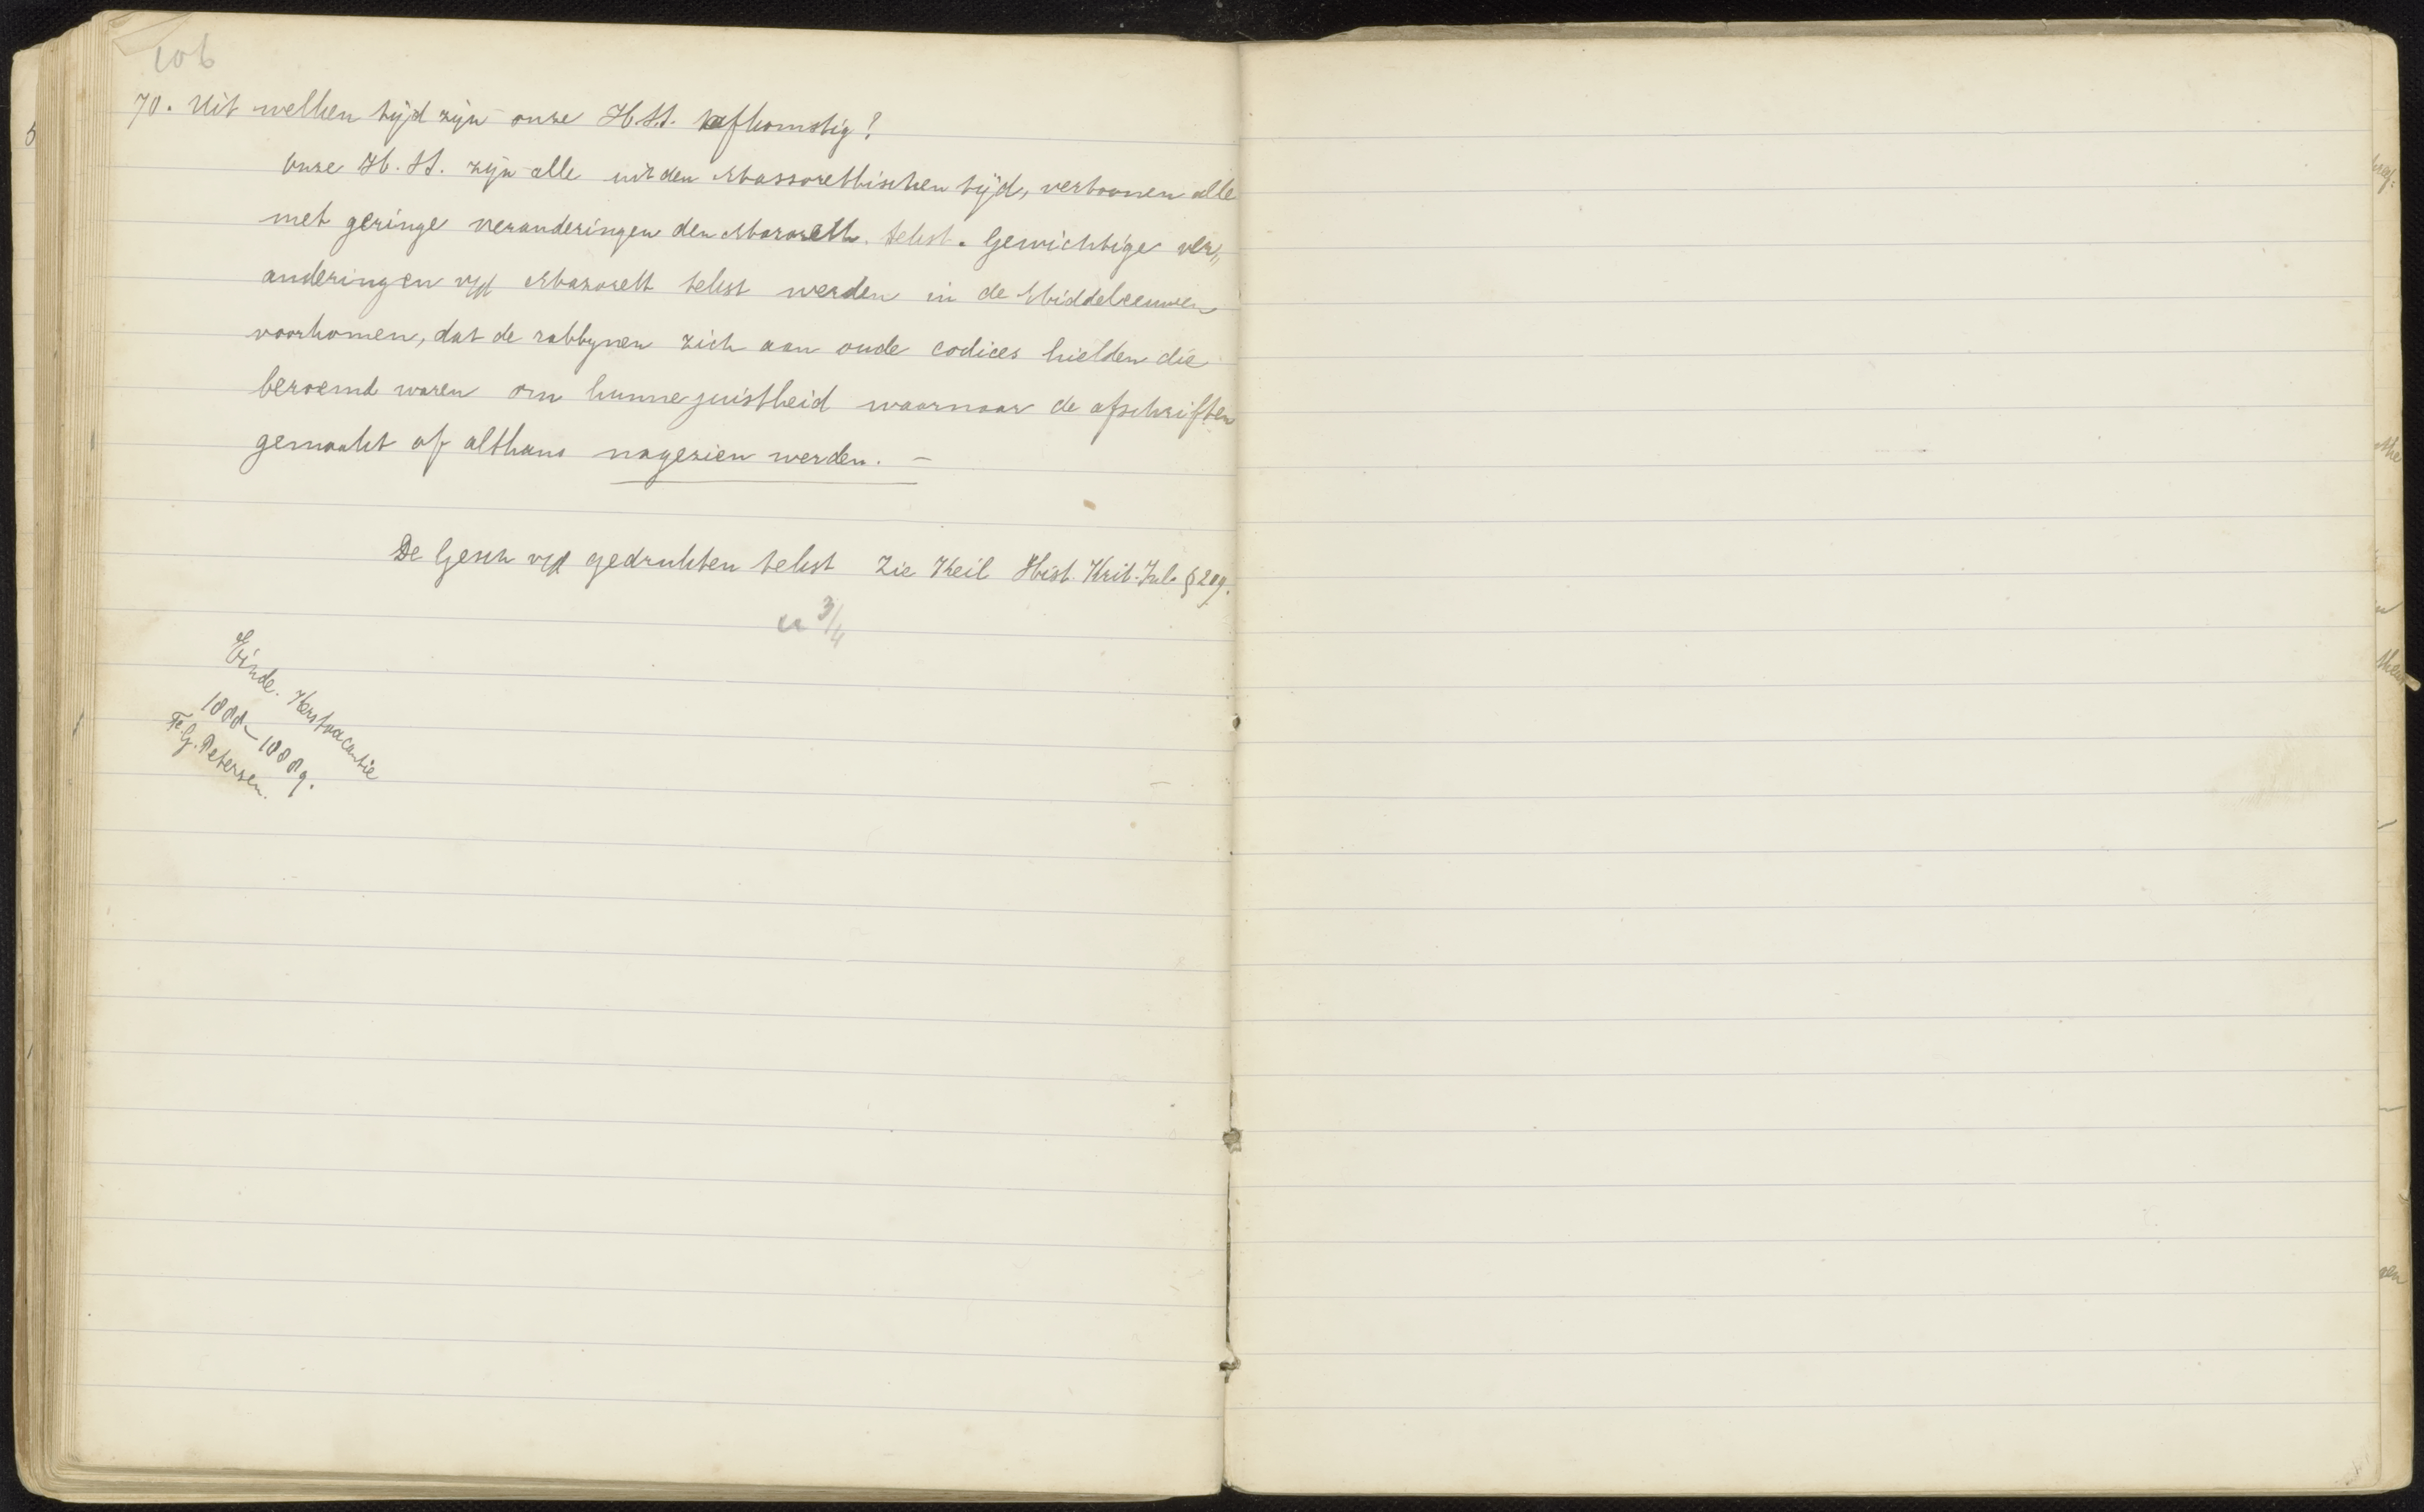 106
70. Uit welken tijd zijn onze H.S.S. afkomstig?
Onze H.SS. zijn alle uit den Massorethischen tijd, vertoonen alle
met geringe veranderingen den Masoreth. tekst. Gewichtige ver„
anderingen v/d Masoreth tekst werden in de Middeleeuwen
voorkomen, dat de rabbynen zich aan oude codices hielden die
beroemd waren om hunne juistheid waarnaar de afschriften
gemaakt of althans nagezien werden. –
De Gesch v/d gedrukten tekst Zie Keil Hist. Krit. Inl. § 209.
3/4
Einde. Kerstvacantie
1888–1889.
F.G. Petersen.